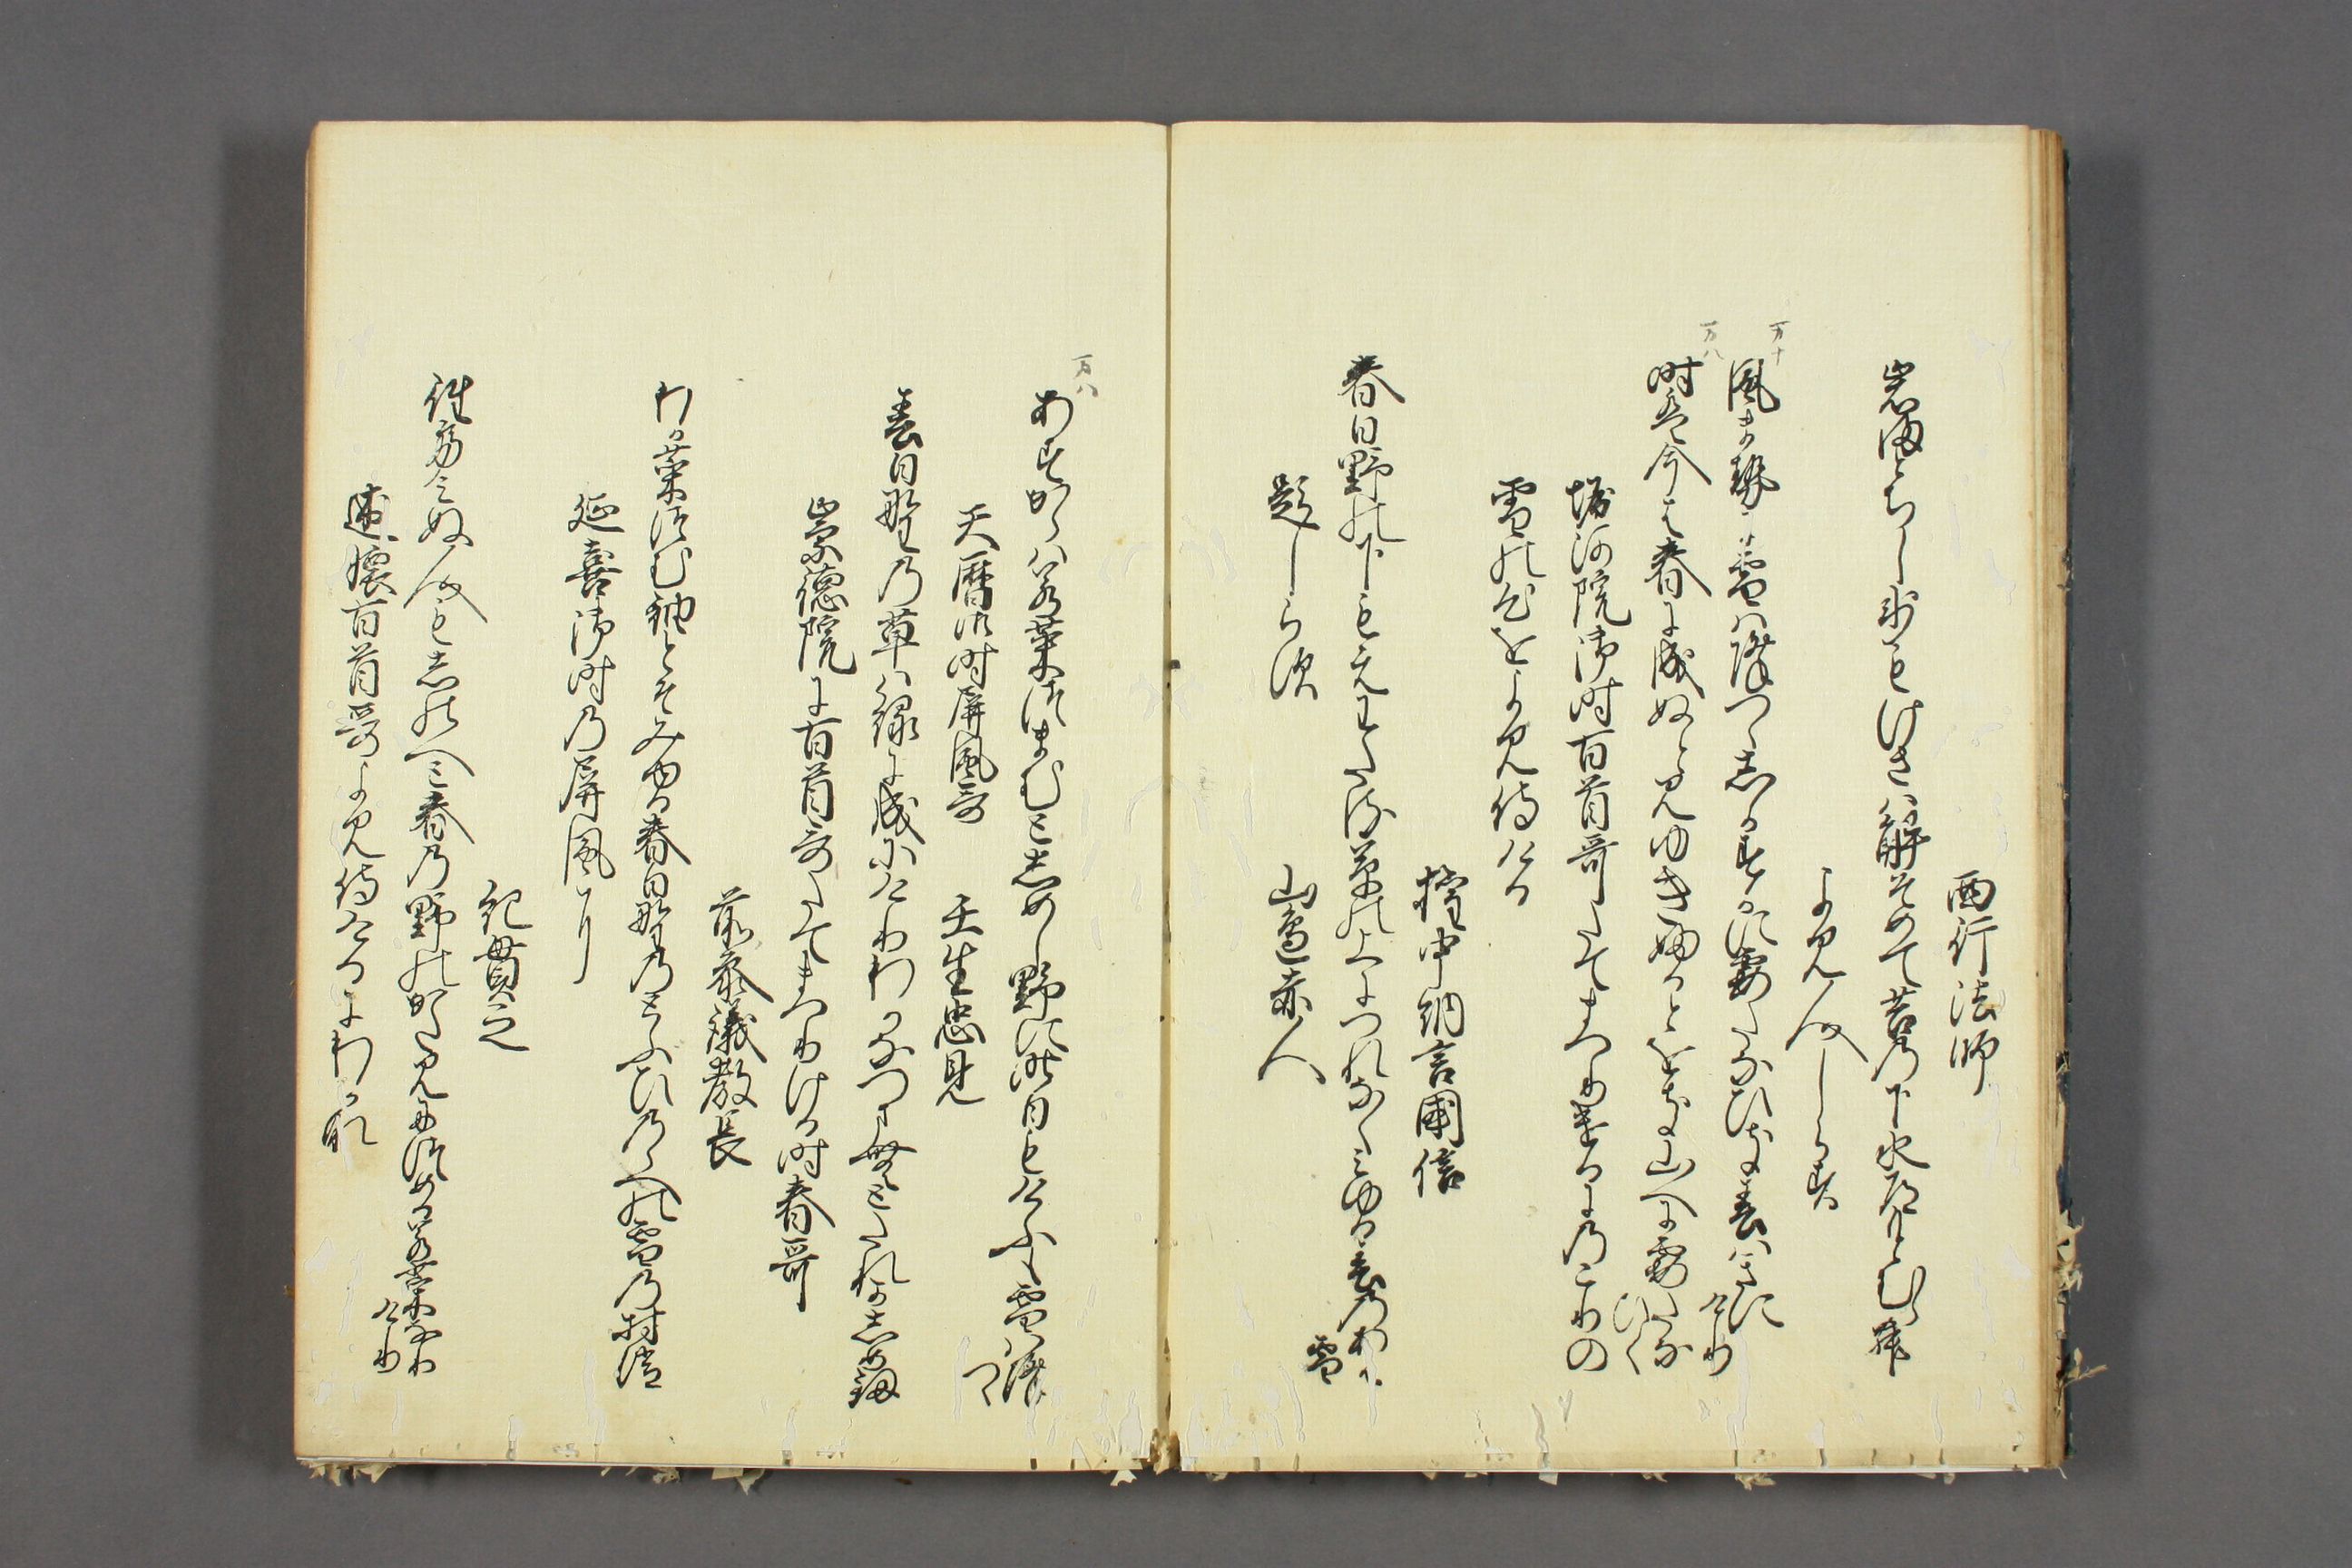 西行法師
岩間とちし氷もけさは解そめて苔の下水道もとむら舞
よみ人しらす
万十
風ませに雪は降つゝしかすかに霞たなひき春はきに
けり
万八
時は今は春に成ぬとみゆきふるとをき山へに霞たな
ひく
堀河院御時百首哥たてまつりけるにのこりの
雪の心をよみ侍ける
権中納言国信
春日野の下もえわたる草の上につれなくみゆる春のあは
雪
題しらす
山邊赤人
万八
あすからは若菜つまむとしめし野に昨日もけふも雪は降
つゝ
天暦御時屏風哥
壬生忠見
春日野の草は緑に成にけりわかなつまむとたれかしめ釼
崇徳院に百首哥たてまつりける時春哥
前参議教長
わか菜つむ袖とそみゆる春日野のとふひのゝへの雪の村消
延喜御時の屏風に
紀貫之
往て見ぬ人もしのへと春の野のかたみにつめる若菜なり
けり
述懐百首哥よみ侍けるにわかな